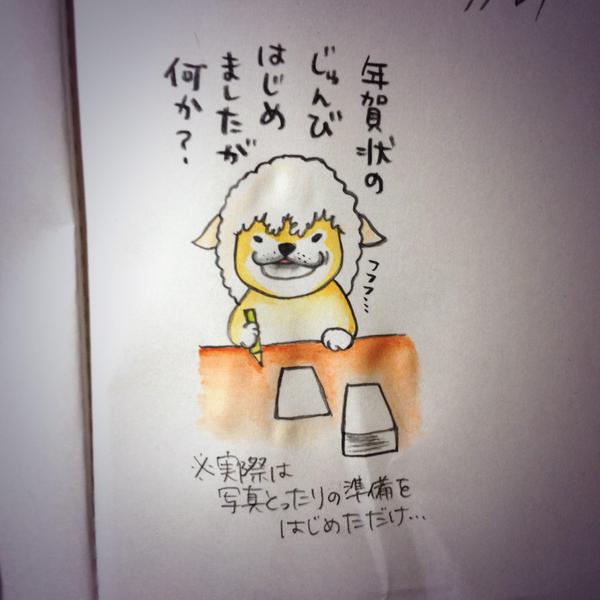 年賀状の
じゅんび
はじめ
ましたが
何か?
フフフ…
※実際は
写真とったりの準備を
はじめただけ…